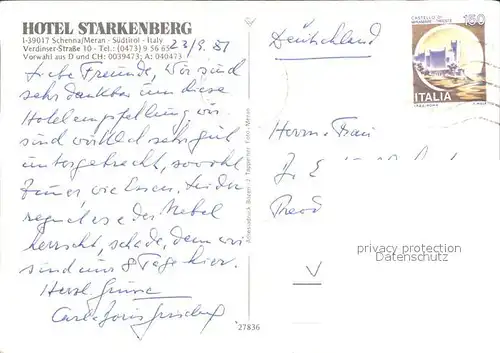 HOTEL STARKENBERG
I-39017 Schenna/Meran - Südtirol - Italy
Verdinser-Straße 10 - Tel.: (0473) 9 56 65
Vorwahl aus D und CH: 0039473; A: 040473
Liebe Freunde, wir sind
sehr dankbar um diese
Hotelempfehlung, wir
sind wirklich sehr gut
untergebracht, sowohl
Zimmer wie Essen. Leider
regnet es o der Nebel
herrscht, schade, denn wir
sind nur 8 Tage hier.
Herzl. Grüsse
Deutschland
CASTELLO DI
MIRAMARE - TRIESTE
150
ITALIA
Herrn + Frau
privacy protection
Datenschutz
V
27836